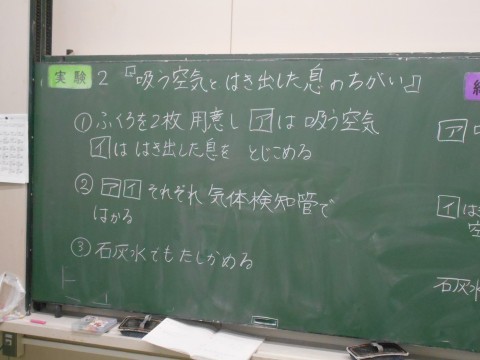 実験 2 『吸う空気とはき出した息のちがい』
① ふくろを2枚 用意し ア は 吸う空気
イ は はき出した息を とじこめる
② ア イ それぞれ 気体検知管で
はかる
③ 石灰水でもたしかめる
ア
イ は
石灰水